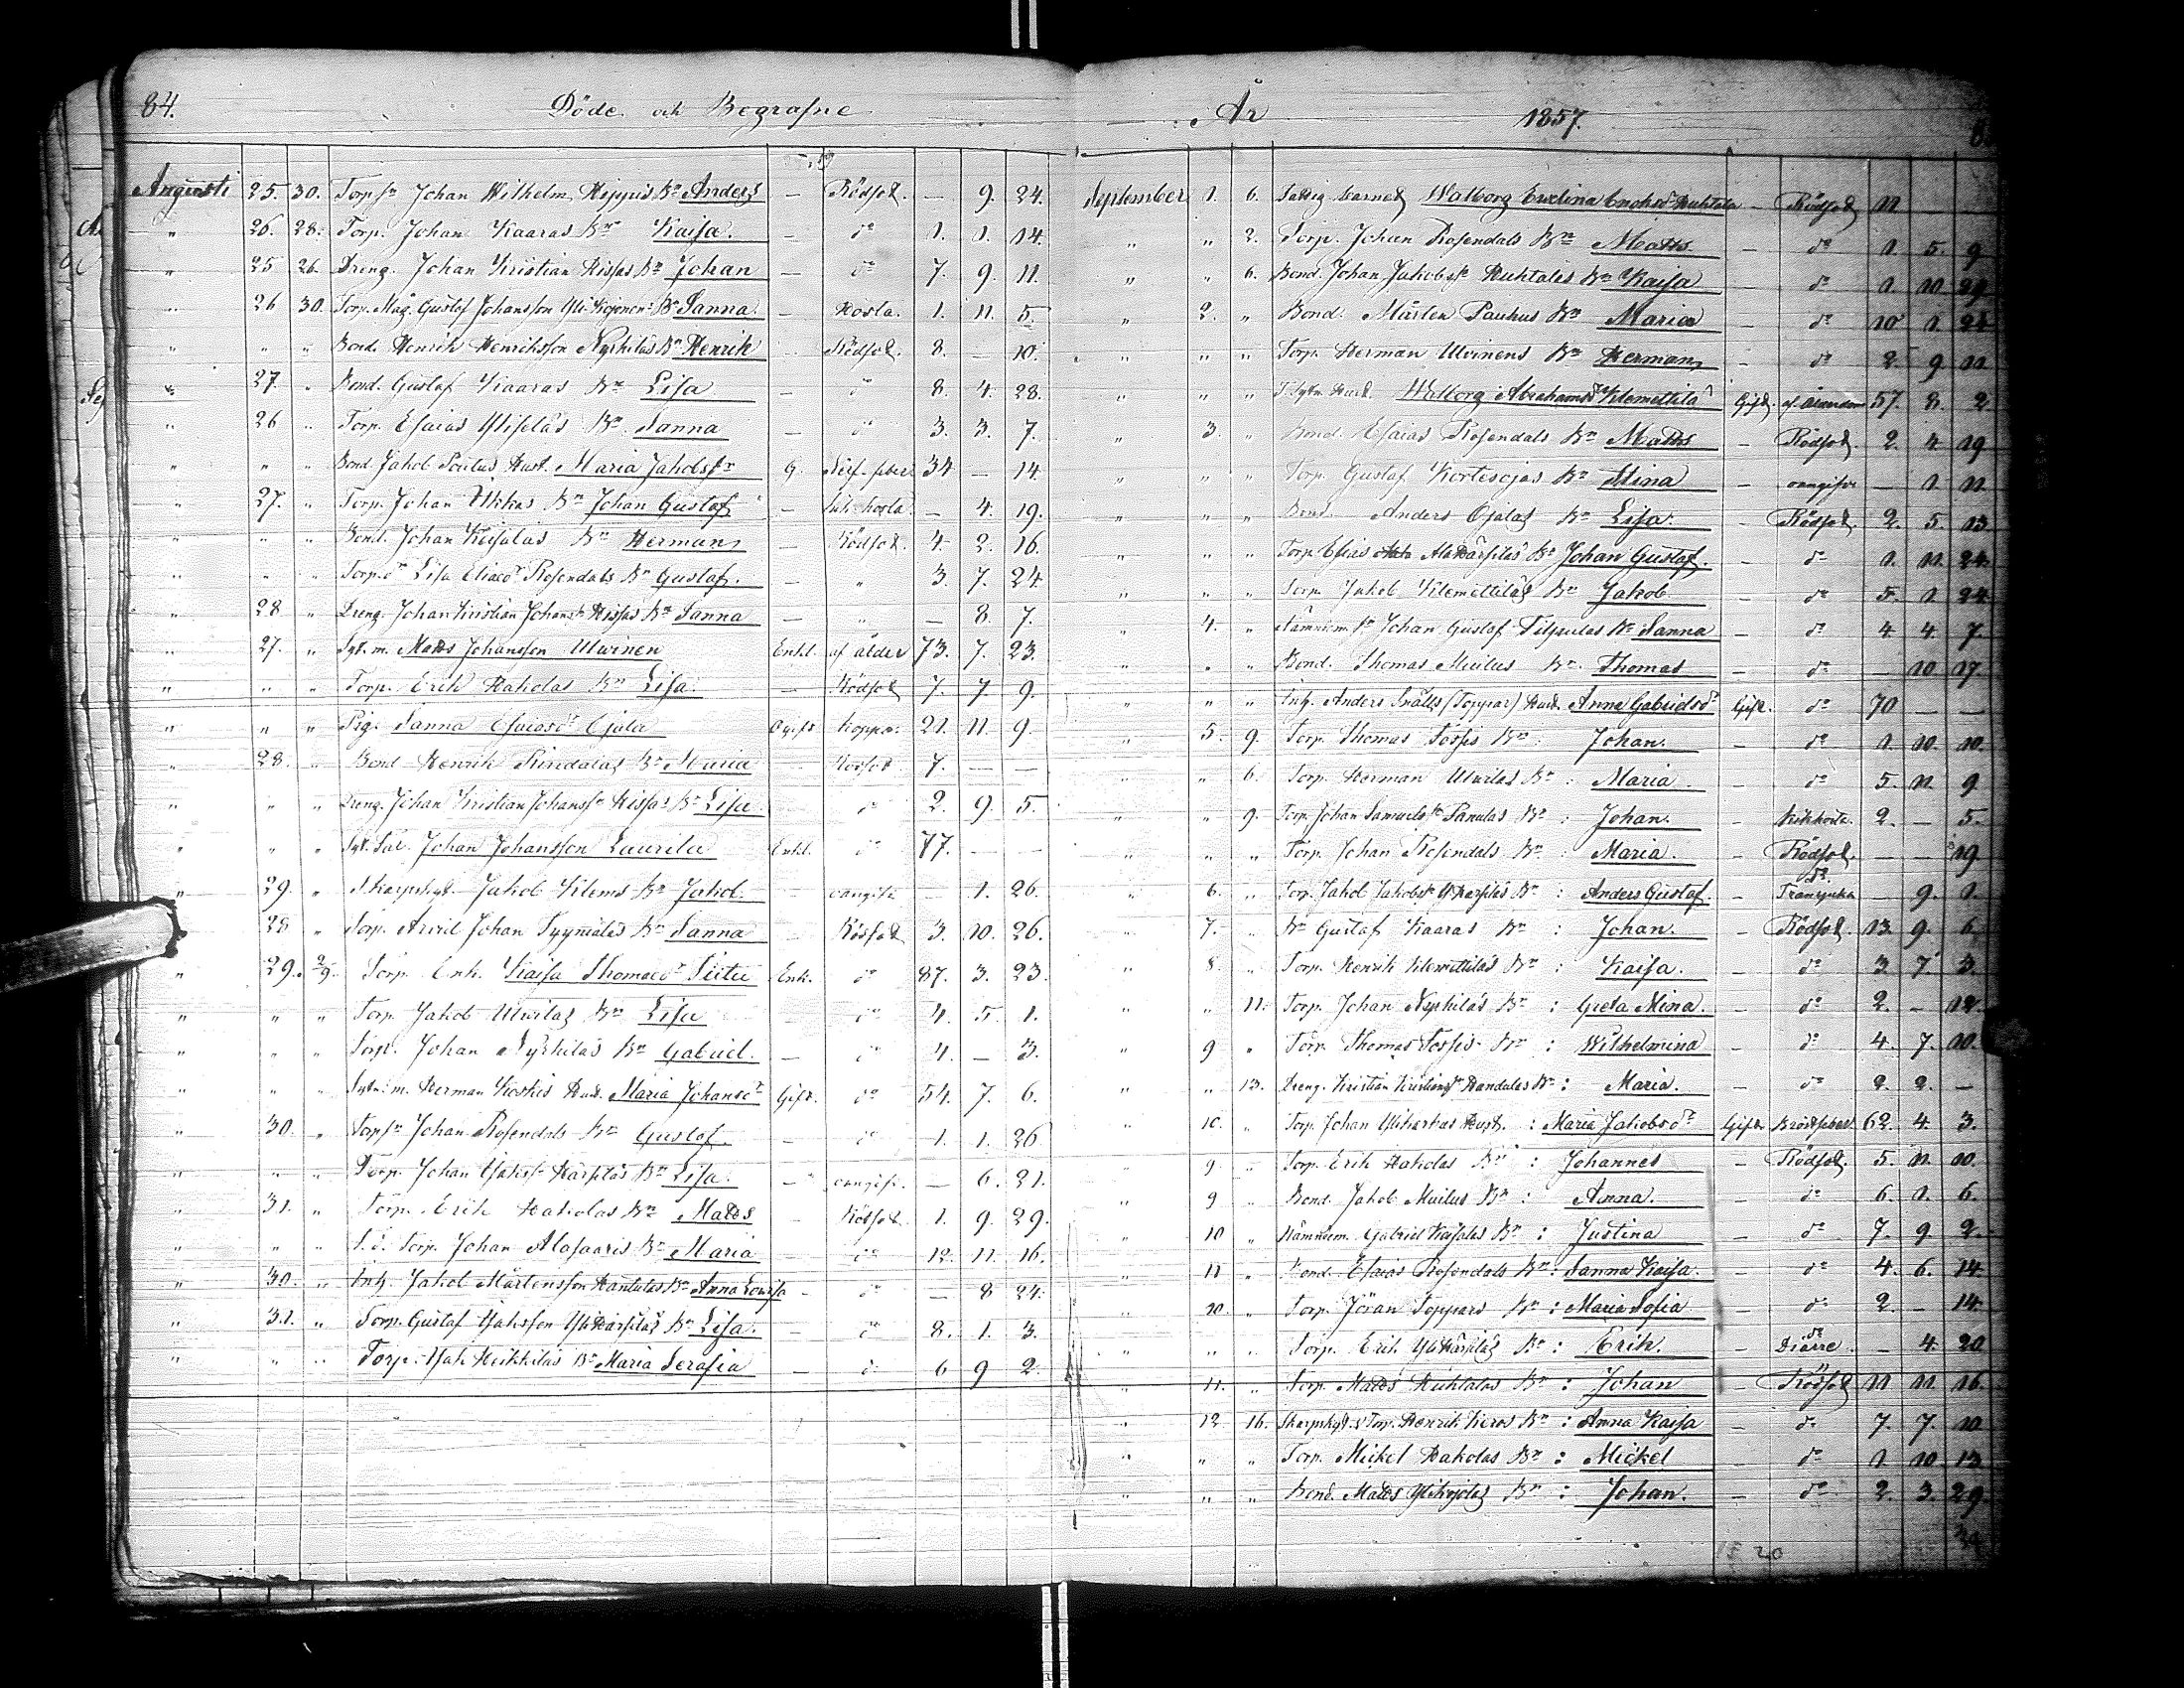 84. Döde och Begrafne
Augusti 25. 30. Torp.sn Johan Wilhelm Hippis Bn Anders — Rödsot. — 9. 24.
" 26. 28. Torp. Johan Kaaras Bn Kaisa. — do 1. 1. 14.
" 25 26. Dreng. Johan Kristian Hissas Bn Johan — do 7. 9. 11.
" 26 30. Torp. Måg. Gustaf Johansson Yli Kojonen: Bn Sanna. — Hosta. 1. 11. 5.
" " " Bond. Henrik Henriksson Nyrhiläs Bn Henrik — Rödsot. 8. — 10.
" 27. " Bond. Gustaf Kaaras Bn Lisa — do 8. 4. 28.
" 26 " Torp. Esaias Bn Sanna — do 3. 3. 7.
" " " Bond. Jakob Hust. Maria Jakobsdr G. feber 34 — 14.
" 27. " Torp. Johan Ukkas Bn Johan Gustaf — kikhosta. — 4. 19.
" " " Bond. Johan Keisalas Bn Herman — Rödsot. 4. 2. 16.
" " " Torp.dr Lisa Eliaedr Rosendals Bn Gustaf. — " 3. 7. 24.
" 28 " Dreng. Johan Kristian Johanss. Hissas Bn Sanna — " — 8. 7.
" 27. " Syt. m. Matts Johansson Ulvinen Enkl. af ålder 73. 7. 23.
" " " Torp. Erik Hakolas Bn Lisa. — Rödsot 7. 7. 9.
" " " Pig. Sanna Esaiasdr Ojala Ogift Koppor. 21. 11. 9.
" 28. " Bond Henrik Bn Maria — Rödsot 7. — —
" " " Dreng. Johan Kristian Johanss. Hissas Bn Lisa — do 2. 9. 5.
" " " Johan Johansson Laurila Enkl. do 77. — —
" 29. " Skarpskyt. Jakob Klems Bn Jakob. — oangifv. — 1. 26.
" 28 " Torp. Arvid Johan Tyynäläs Bn Sanna — Rödsot 3. 10. 26.
" 29. 2/9. Torp. Enk. Kaisa Thomaedr Enk. do 87. 3. 23.
" " " Torp. Jakob Ulvilas Bn Lisa — do 4. 5. 1.
" " " Torp. Johan Nyrhiläs Bn Gabriel. — do 4. — 3.
" " " Syt. m. Herman Koskis Hust. Maria Johansdr Gift. do 54. 7. 6.
" 30. " Torp.sn Johan Rosendals Bn Gustaf. — do 1. 1. 26
" " " Torp. Johan Härsiläs Bn Lisa. — oangifv. — 6. 21.
" 31. " Torp. Erik Hakolas Bn Matts — Rödsot 1. 9. 29.
" " " Torp. Johan Alasaaris Bn Maria — do 12. 11. 16.
" 30. " Inh. Jakob Mårtensson Hantulas Bn Anna Lovisa — do — 8 24.
" 31. " Torp. Gustaf Isaksson Yli Härsiläs Bn Lisa. — do 8. 1. 3.
" " " Torp. Isak Heikkiläs Bn Maria Serafia — do 6 9 2.
År 1857.
September 1. 6. Fattig barnet Walborg Evelina Enoksdr Huhtala — Rödsot 11 — —
" " 2. Torp. Johan Rosendals Bn Matts — do 1. 5. 9
" " 6. Bond. Johan Jakobss. Huhtalas Bn Kaisa — do 1. 10 29
" 2. " Bond. Mårten Pauhus Bn Maria — do 10 1. 24
" " " Torp. Herman Ulvinens Bn Herman — do 2. 9. 11.
" " " Hust. Walborg Abrahamsdr Klemettilä Gift. 57. 8. 2.
" 3. " Bond. Esaias Rosendals Bn Matts — Rödsot 2. 4. 19
" " " Torp. Gustaf Kortesojas Bn Stina — oangifv. — 1. 11.
" " " Bond. Anders Ojalas Bn Lisa. — Rödsot 2. 5. 13
" " " Torp. Elias Ala Härsiläs Bn Johan Gustaf. — do 1. 11. 24.
" " " Torp. Jakob Klemettiläs Bn Jakob. — do 5. 1. 24
" 4. " Nämndem. sn Johan Gustaf Bn Sanna — do 4 4. 7.
" " " Bond. Thomas Muilus Bn Thomas — do — 10 17.
" " " Inh. Anders Snälls (Toppar) Hust. Anna Gabrielsdr Gift. do 70 — —
" 5. 9. Torp. Thomas Torpis Bn: Johan. — do 1. 10. 10.
" " 6. Torp. Herman Ulvilas Bn: Maria. — do 5. 11. 9
" " 9. Torp. Johan Samuelss. Panulas Bn: Johan. — Kikhosta. 2. — 5.
" " " Torp. Johan Rosendals Bn: Maria. — Rödsot. — — 19.
" 6. " Torp. Jakob Jakobss. Härsiläs Bn: Anders Gustaf. — do Transjuka — 9. 1.
" 7. " Bn Gustaf Kaaras Bn: Johan. — Rödsot. 13. 9. 6.
" 8. " Torp. Henrik Klemettiläs Bn: Kaisa. — do 3. 7. 3.
" " 11. Torp. Johan Bn: Greta Mina. — do 2. — 12.
" 9 " Torp. Thomas Torpis Bn: Wilhelmina — do 4. 7. 10.
" " 13. Dreng. Kristian Kristianss. Bn: Maria. — do 2. 2. —
" 10. " Torp. Johan Hust.: Maria Jakobsdr Gift Bröstfeber 62. 4. 3.
" 9 " Torp. Erik Hakolas Bn: Johannes — Rödsot. 5. 11. 10.
" 9 " Bond. Jakob Muilus Bn: Anna. — do 6. 1. 6.
" 10 " Nämndem. Gabriel Keisalas Bn: Justina — do 7. 9. 2.
" 11 " Bond. Esaias Rosendals Bn: Sanna Kaisa. — do 4. 6. 14.
" 10. " Torp. Jöran Toppars Bn: Maria Sofia — do 2. — 14.
" " " Torp. Erik Yli Härsiläs Bn: Erik. — do Diarre. — 4. 20
" 11. " Torp. Matts Huhtalas Bn: Johan — Rödsot 11 11. 16.
" 12 16. Skarpskyt. & Torp. Henrik Bn: Anna Kaisa — do 7. 7. 10
" " " Torp. Mickel Hakolas Bn: Mickel — do 1. 10 13
" " " Bond. Matts Bn: Johan. — do 2. 3. 29
20